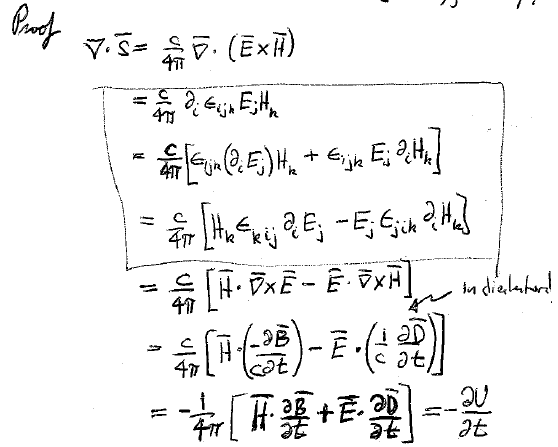 Proof
∇̄·S̄ = c/4π ∇̄·(Ē×H̄)
= c/4π ∂ᵢ ϵᵢⱼₖ Eⱼ Hₖ
= c/4π [ϵᵢⱼₖ(∂ᵢEⱼ)Hₖ + ϵᵢⱼₖ Eⱼ ∂ᵢHₖ]
= c/4π [Hₖ ϵₖᵢⱼ ∂ᵢEⱼ − Eⱼ ϵⱼᵢₖ ∂ᵢHₖ]
= c/4π [H̄·∇̄×Ē − Ē·∇̄×H̄]
in
= c/4π [H̄·(−∂B̄/c∂t) − Ē·(1/c ∂D̄/∂t)]
= −1/4π [H̄·∂B̄/∂t + Ē·∂D̄/∂t] = −∂U/∂t